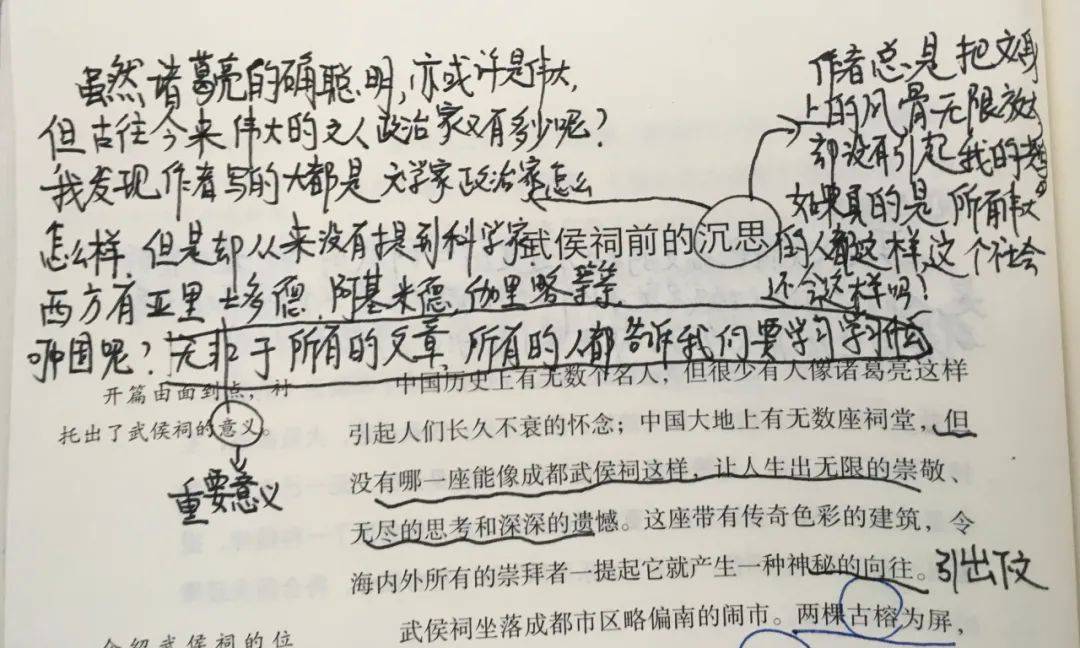 虽然诸葛亮的确聪明,亦或许是伟大,
但古往今来伟大的文人政治家又有多少呢?
我发现作者写的大都是文学家政治家怎么
怎么样,但是却从来没有提到科学家,
西方有亚里士多德,阿基米德,伽里略等等
中国呢?无非于所有的文章,所有的人都告诉我们要学习学习
作者总是把文人身
上的风骨无限放大
却没有引起我的
如果真的是所有伟大
的人都这样,这个社会
还会这样吗?
武侯祠前的沉思
开篇由面到点,衬
托出了武侯祠的意义。
重要意义
中国历史上有无数个名人,但很少有人像诸葛亮这样
引起人们长久不衰的怀念;中国大地上有无数座祠堂,但
没有哪一座能像成都武侯祠这样,让人生出无限的崇敬、
无尽的思考和深深的遗憾。这座带有传奇色彩的建筑,令
海内外所有的崇拜者一提起它就产生一种神秘的向往。
引出下文
武侯祠坐落成都市区略偏南的闹市。两棵古榕为屏,
介绍武侯祠的位